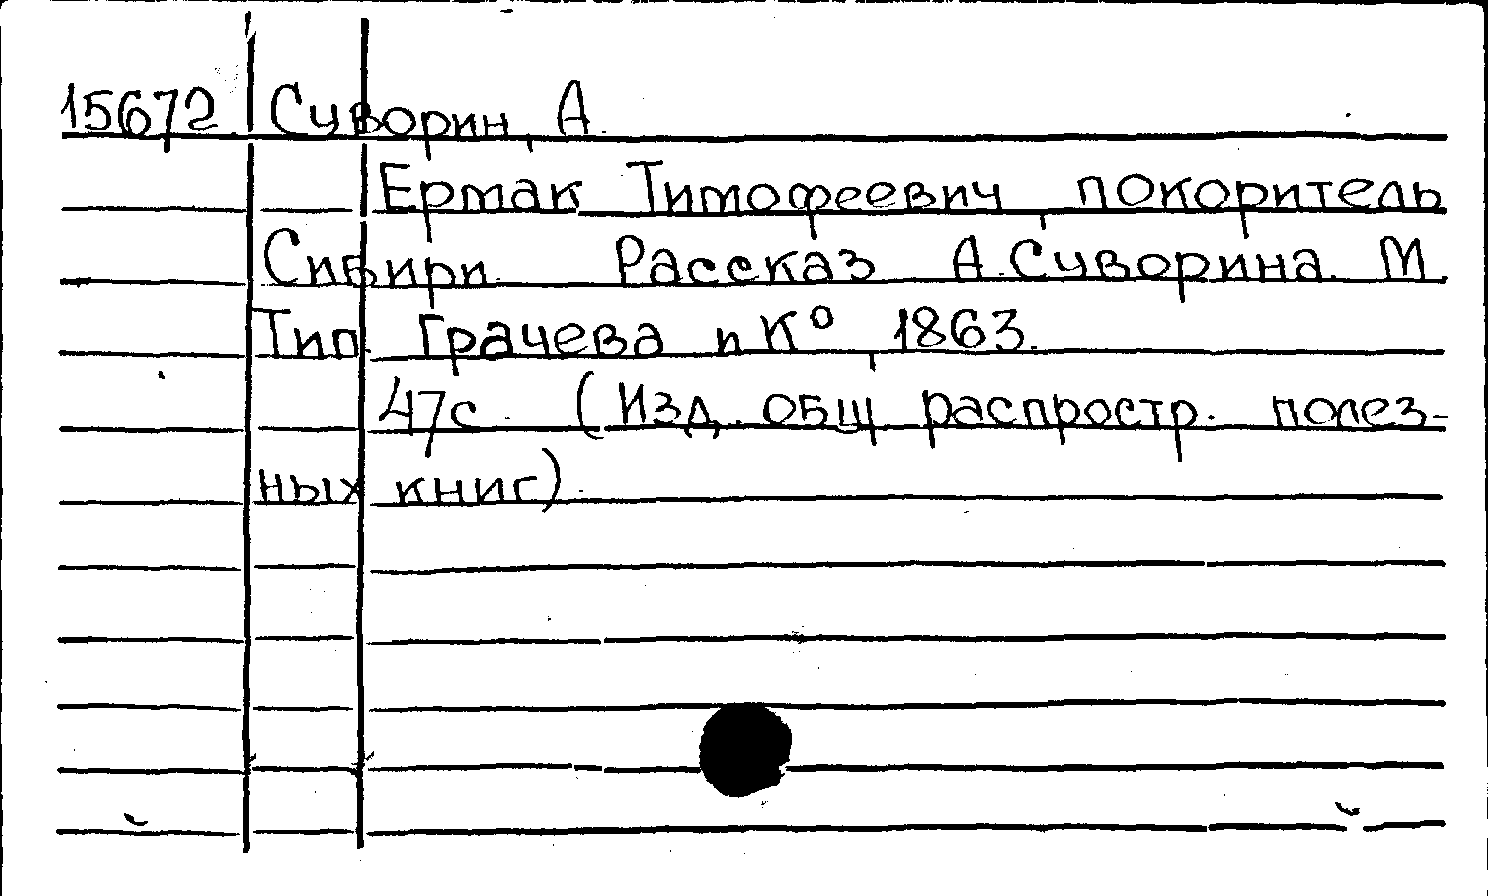 15672 Суворин, А.
Ермак Тимофеевич, покоритель
Сибири. Рассказ А. Суворина. М.
Тип. Грачева и К°, 1863.
47с. (Изд. общ. распростр. полез-
ных книг).